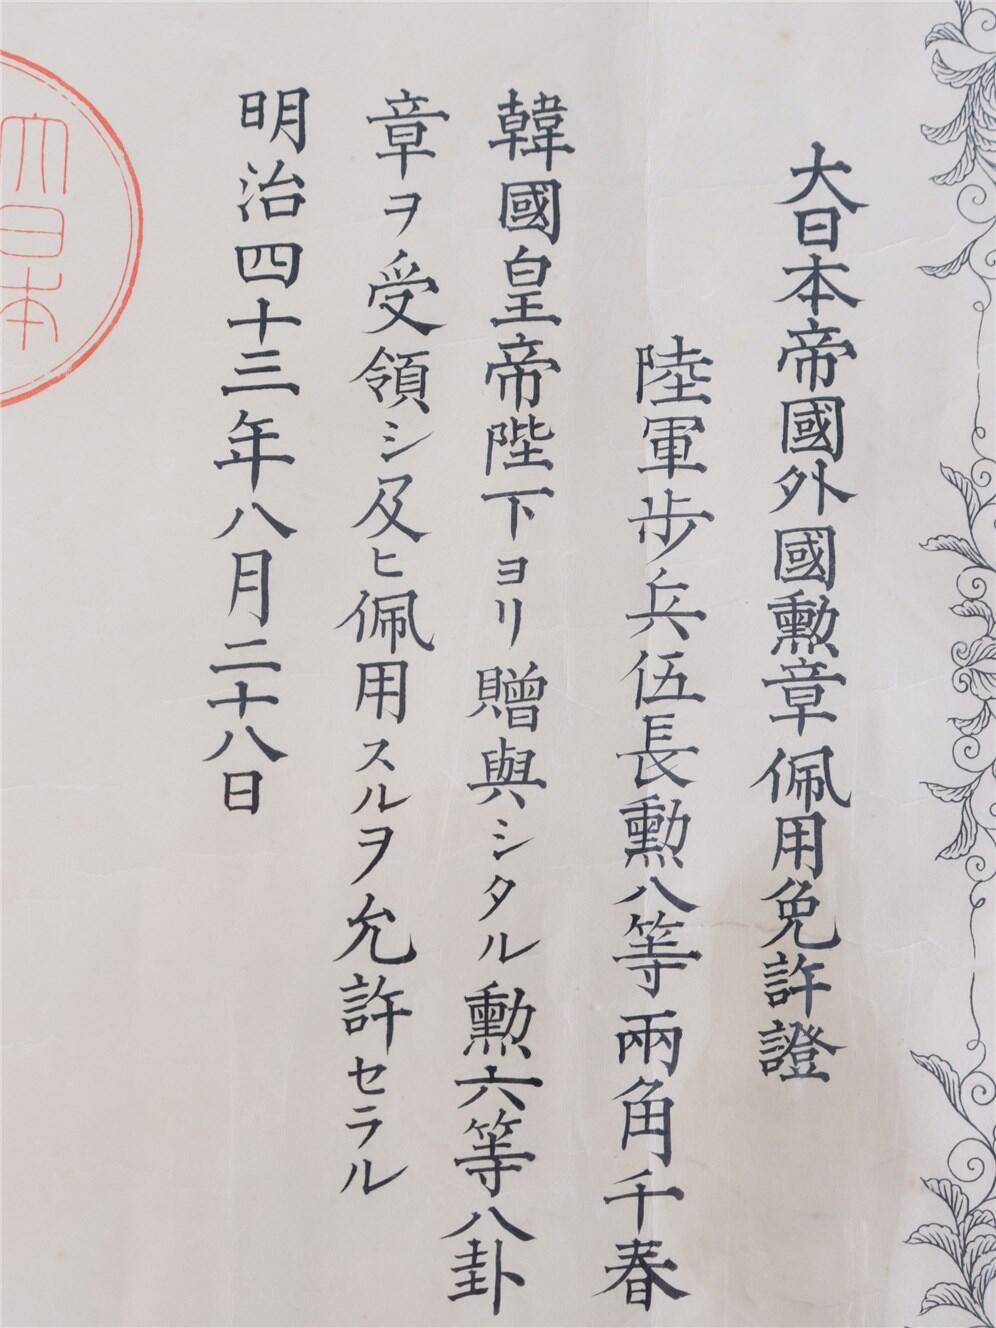 大日本帝國外國勲章佩用免許證
陸軍歩兵伍長勲八等兩角千春
韓國皇帝陛下ヨリ贈與シタル勲六等八卦
章ヲ受領シ及ヒ佩用スルヲ允許セラル
明治四十三年八月二十八日
大日本